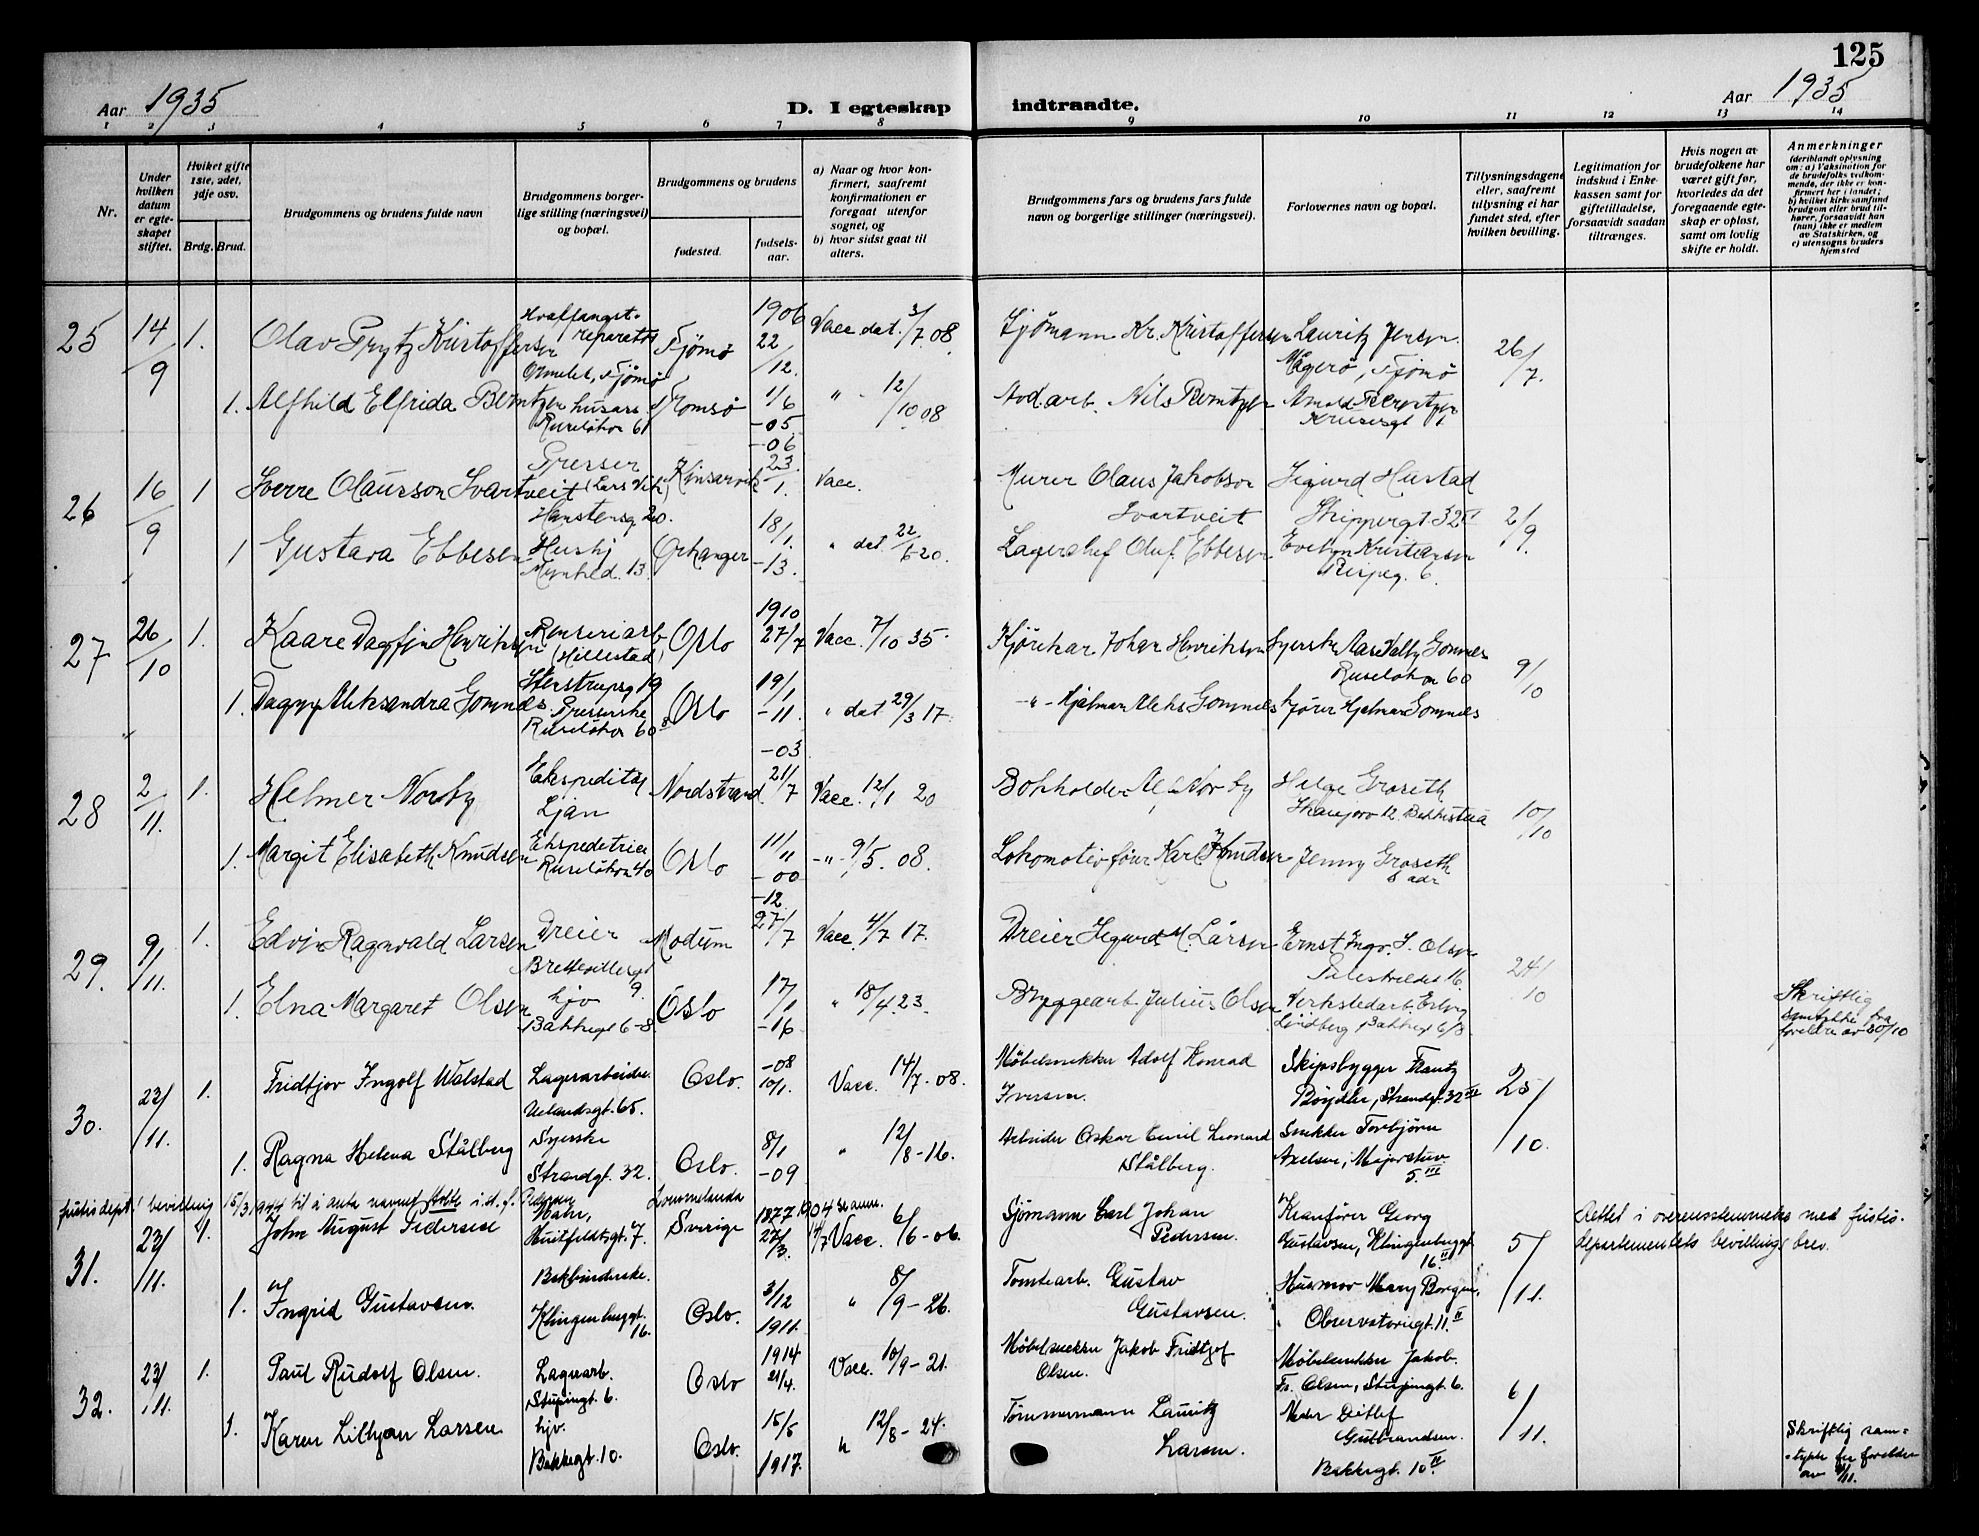 125
Aar 1935
D. I egteskap indtraadte.
Aar 1935
1 2 3 4 5 6 7 8 9 10 11 12 13 14
Nr.
Under hvilken datum er egteskapet stiftet.
Hvilket gifte 1ste, 2det, 3dje osv.
Brdg. Brud.
Brudgommens og brudens fulde navn
Brudgommens borgerlige stilling (næringsvei) og bopæl.
Brudgommens og brudens
fødested.
fødselsaar.
a) Naar og hvor konfirmert, saafremt konfirmationen er foregaat utenfor sognet, og
b) hvor sidst gaat til alters.
Brudgommens fars og brudens fars fulde navn og borgerlige stillinger (næringsvei).
Forlovernes navn og bopæl.
Tillysningsdagene eller, saafremt tillysning ei har fundet sted, efter hvilken bevilling.
Legitimation for indskud i Enkekassen samt for giftetilladelse, forsaavidt saadan tiltrænges.
Hvis nogen av brudefolkene har været gift før, hvorledes da det foregaaende egteskap er opløst, samt om lovlig skifte er holdt.
Anmerkninger
(deriblandt oplysning om: a) Vaksination for de brudefolks vedkommende, der ikke er konfirmert her i landet; b) hvilket kirkesamfund brudgom eller brud tilhører, forsaavidt han (hun) ikke er medlem av Statskirken, og c) utensogns bruders hjemsted
25 14/9 1. Olav Prytz Kristoffersen Hvalfangst-reparatør Ormelet, Tjømø Tjømø 1906 22/12. Vacc. dat. 3/7 08. Sjømann Kr. Kristoffersen Lauritz Jensen Magerø, Tjømø 26/7.
1. Alfhild Elfrida Berntzen husass. Ruseløkv 61 Tromsø 1/6 -05 " 12/10 08 Nils Berntzen
26 16/9 1 Sverre Olausson Svartveit Presser (Lars Vik) Hanstensg 20. Kinsarvik -06 23/1. Vacc. Murer Olaus Jakobson Svartveit Sigurd Hustad Skippergt. 32 II 2/9.
1 Gustava Ebbesen Orkanger 18/1 -13. " dat 22/6 20. Lagerchef Oluf Ebbesen Evelyn Kristiansen
27 26/10 1. Kaare Dagfin Henriksen Renseriarb (Hillestad) Oslo 1910 27/7 Vacc. 7/10 35. Kjørekar Johan Henriksen Syerske Aase Valby Gommes Ruseløkv 60 9/10
1. Dagny Aleksandra Gommes Presserske Ruseløkv 60 Oslo 19/1 -11. " dat 29/3 17. -"- Hjalmar Aleks Gommes kjører Hjalmar Gommes
28 2/11. 1. Helmer Norby Ekspeditør Ljan Nordstrand -03 21/7 Vacc. 12/1 20 Bokholder Alf Norby Helge Graseth 10/10
1. Margit Elisabeth Knudsen Ekspeditrice Ruseløkvn 40 Oslo 11/11 -00 -"- 9/5. 08. Lokomotivfører Karl Knudsen Jenny Graseth s adr
29. 9/11. 1. Edvin Ragnvald Larsen Dreier 9. Modum -12. 27/7 Vacc. 4/7 17. Dreier Sigurd M Larsen Ernst Ingv. S. Olsen Pilestredet 16 24/10
1. Elna Margaret Olsen hjv Bakkegt 6-8 Oslo 17/1 -16 " 18/4. 23. Bryggearb. Julius Olsen Verkstedarb. Erling Lindberg Bakkegt 6/8 Skriftlig samtykke fra foreldre av 30/10
30. 23/11. 1. Fridtjov Ingolf Walstad Lagerarbeider. Uelandsgt. 65. Oslo. -08 10/1. Vacc. 14/7. 08. Møbelsnekker Adolf Konrad Iversen. Skipsbygger Frantz Strandgt. 32 III 25/10.
1. Ragna Helena Stålberg Syerske Strandgt. 32. Oslo. 8/1 -09 " 12/8-16. Arbeider Oskar Emil Leonard Stålberg. Snekker Torbjørn Axelsen, Majorstuv 5. III
Justisdept.s bevilling 15/3 1944 til å anta navnet Holte i st. f. Pedersen
31. 23/11. 1. John August Pedersen Maler, Huitfeldtsgt. 7. Lommelanda Sverige 1877 27/3. Vacc. 6/6-06. Sjømann Carl Johan Pedersen. Kranfører Georg Gustavsen, Klingenberggt 16. II 5/11. Rettet i overensstemmelse med justisdepartementets bevillingsbrev.
1. Ingrid Gustavsen. Bokbinderske. Klingenberggt. 16. Oslo. 3/12 1911. " 8/9-26. Tomtearb. Gustav Gustavsen. Husmor Mary Borgen, Observatoriegt. 11. II
32. 23/11. 1. Paul Rudolf Olsen. Lagerarb. Stupingt. 6. Oslo 1914 21/4. Vacc. 10/9-21. Møbelsnekker Jakob Fridtjof Olsen. Møbelsnekker Jakob Fr. Olsen, Stupingt. 6. 6/11.
1. Karen Lillyan Larsen hjv. Bakkegt. 10. Oslo. 15/5 1917. " 12/8-24. Tømmermann Lauritz Larsen. Maler Ditlef Gulbrandsen. Bakkegt. 10 IV. Skriftlig samtykke fra foreldre av